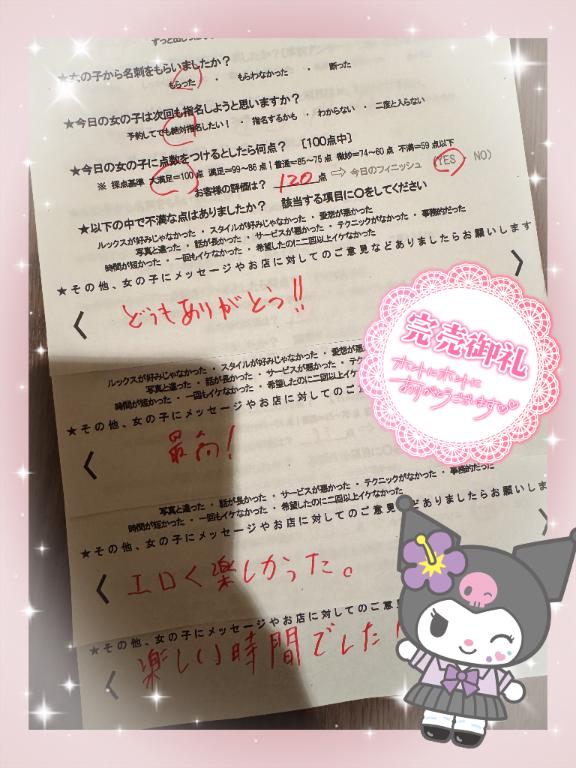 ★女の子から名刺をもらいましたか？
もらった ・ もらわなかった ・ 断った
★今日の女の子は次回も指名しようと思いますか？
予約してでも絶対指名したい！ ・ 指名するかも ・ わからない ・ 二度と入らない
★今日の女の子に点数をつけるとしたら何点？ [100点中]
※ 採点基準 大満足＝100点 満足＝99～86点！普通＝85～75点 微妙＝74～60点 不満＝59点以下
お客様の評価は？ 120 点 ⇨ 今日のフィニッシュ (YES ・ NO)
★以下の中で不満な点はありましたか？ 該当する項目に○をしてください
ルックスが好みじゃなかった ・ スタイルが好みじゃなかった ・ 愛想が悪かった
写真と違った ・ 話が長かった ・ サービスが悪かった ・ テクニックがなかった ・ 事務的だった
時間が短かった ・ 一回もイケなかった ・ 希望したのに二回以上イケなかった
★その他、女の子にメッセージやお店に対してのご意見などありましたらお願いします
どうもありがとう!!
完売御礼
ホントにホントに
ありがとうございます♡
ルックスが好みじゃなかった ・ スタイルが好みじゃなかった ・ 愛想が悪
写真と違った ・ 話が長かった ・ サービスが悪かった ・ テク
時間が短かった ・ 一回もイケなかった ・ 希望したのに二回以上イケ
★その他、女の子にメッセージやお店に対してのご
最高!
写真と違った ・ 話が長かった ・ サービスが悪かった ・ テクニックがなかった ・ 事務的だった
時間が短かった ・ 一回もイケなかった ・ 希望したのに二回以上イケなかった
★その他、女の子にメッセージやお店に対してのご意見などありましたらお願いしま
エロく楽しかった。
★その他、女の子にメッセージやお店に対してのご意見
楽しい時間でした!